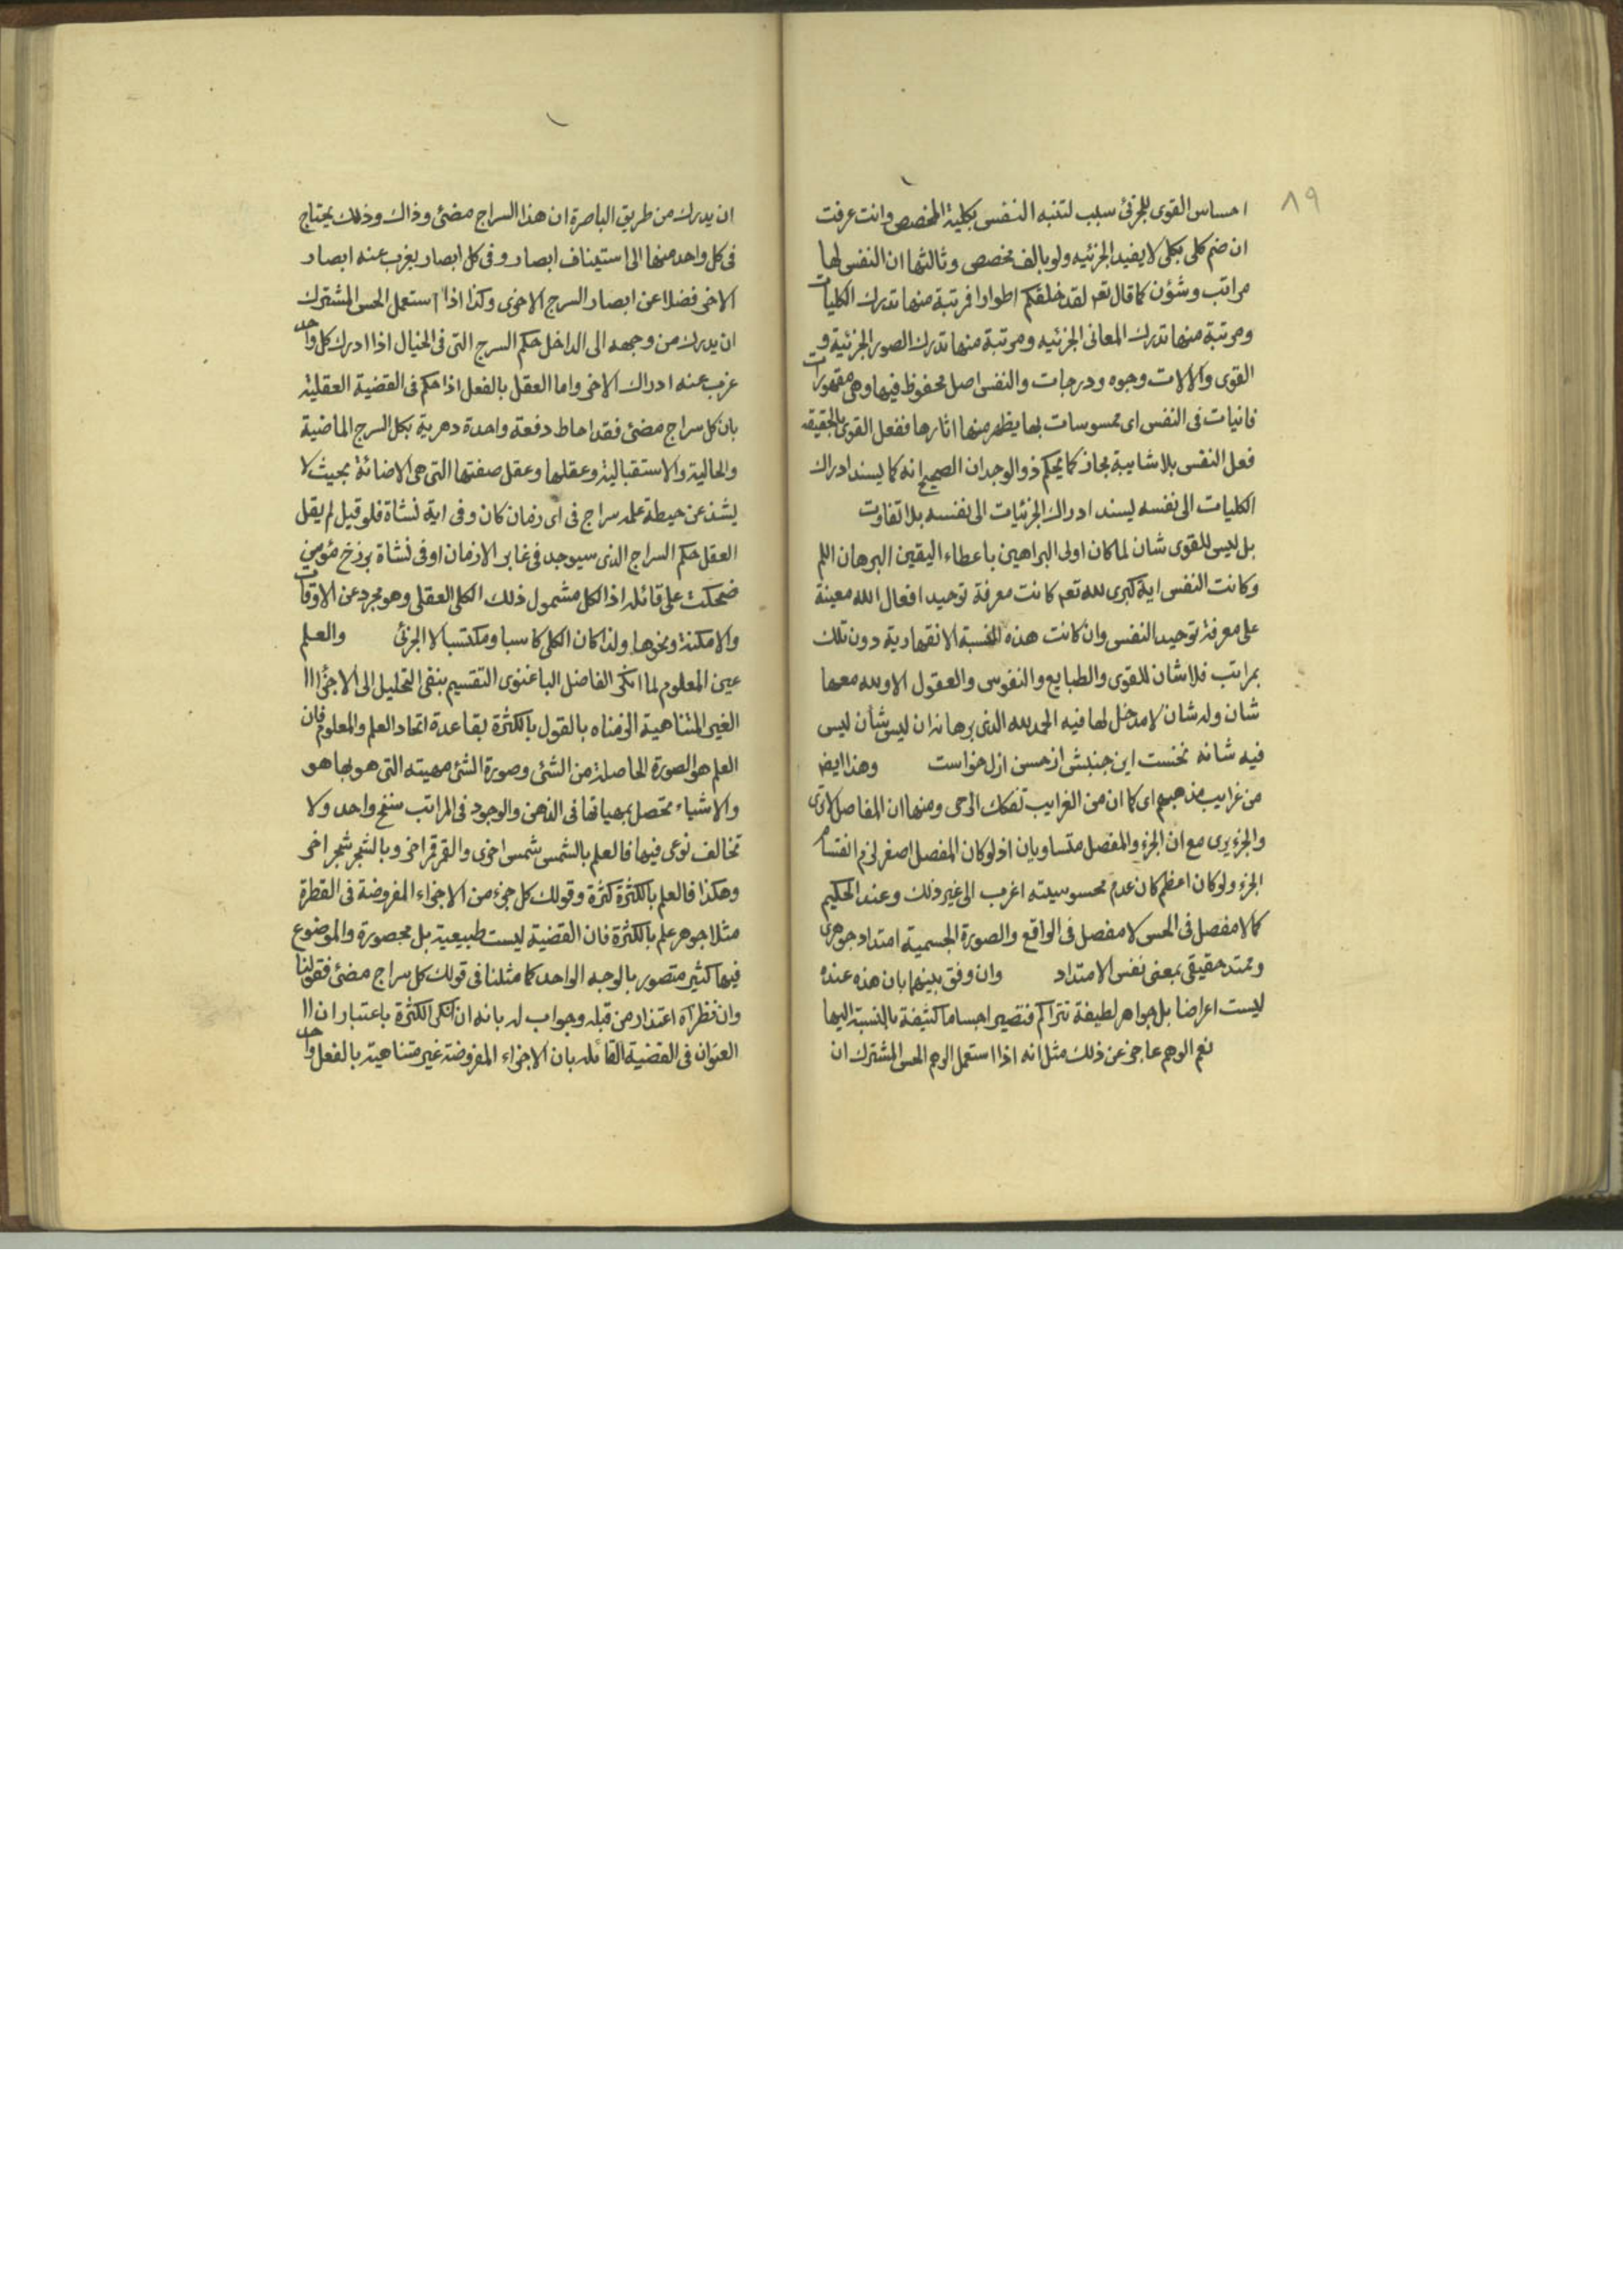 ٨٩
احساس القوى للجزئى سبب لتنبه النفس بكلية المخصص وانت عرفت
ان ضم كلى بكلى لا يفيد الجزئيه ولو بالف مخصص وثالثها ان النفس لها
مراتب وشؤن كما قال تعم لقد خلقكم اطوارا فمرتبة منها تدرك الكليات
ومرتبة منها تدرك المعانى الجزئيه ومرتبة منها تدرك الصور الجزئية و
القوى والالات وجوه ودرجات والنفس اصل محفوظ فيها وهى مقهورات
فانيات فى النفس اى ممسوسات بها يظهر منها اثارها ففعل القوى بالحقيقه
فعل النفس بلا شايبة مجاز كما يحكم ذو الوجدان الصحيح انه كما يسند ادراك
الكليات الى نفسه يسند ادراك الجزئيات الى نفسه بلا تفاوت
بل ليس للقوى شان لما كان اولى البراهين باعطاء اليقين البرهان اللم
وكانت النفس اية كبرى لله تعم كانت معرفة توحيد افعال الله معينة
على معرفة توحيد النفس وان كانت هذه النسبة الانقهارية دون تلك
بمراتب فلا شان للقوى والطبايع والنفوس والعقول الا ولله معها
شان وله شان لا مدخل لها فيه الحمد لله الذى برهانه ان ليس شان ليس
فيه شانه نخست اين جنبش از حسن ازل خواست وهذا ايضا
من غرايب مذهبهم اى كما ان من الغرايب تفكك الرحى ومنها ان المفاصل لا ترى
والجزء يرى مع ان الجزء والمفصل متساويان اذ لو كان المفصل اصغر لزم انقسام
الجزء ولو كان اعظم كان عدم محسوسيته اغرب الى غير ذلك وعند الحكيم
كما لا مفصل فى الحس لا مفصل فى الواقع والصورة الجسمية امتداد جوهرى
وممتد حقيقى بمعنى نفس الامتداد وان وفق بينهما بان هذه عنده
ليست اعراضا بل جواهر لطيفة تتراكم فتصير اجساما كثيفة بالنسبة اليها
نعم الوهم عاجز عن ذلك مثل انه اذا استعمل الوهم الحس المشترك ان
ان يدرك من طريق الباصرة ان هذا السراج مضئ وذاك وذلك يحتاج
فى كل واحد منها الى استيناف ابصار وفى كل ابصار يغرب عنه ابصار
الاخر فضلا عن ابصار السرج الاخرى وكذا اذا استعمل الحس المشترك
ان يدرك من وجهه الى الداخل حكم السرج التى فى الخيال اذا ادرك كل واحد
عزب عنه ادراك الاخر واما العقل بالفعل اذا حكم فى القضية العقلية
بان كل سراج مضئ فقد احاط دفعة واحدة دهرية بكل السرج الماضية
والحالية والاستقبالية وعقلها وعقل صفتها التى هى الاضائة بحيث لا
يشذ عن حيطة علمه سراج فى اى زمان كان وفى اية نشاة فلو قيل لم يقل
العقل حكم السراج الذى سيوجد فى غابر الازمان او فى نشاة برزخ مؤمن
ضحكت على قائله اذ الكل مشمول ذلك الكلى العقلى وهو مجرد عن الاوقات
والامكنة ونحوها ولذا كان الكلى كاسبا ومكتسبا لا الجزئى والعلم
عين المعلوم لما انكر الفاضل الباغنوى التقسيم بنفى التحليل الى الاجزاء
الغير المتناهية الزمناه بالقول بالكثرة بقاعدة اتحاد العلم والمعلوم فان
العلم هو الصورة الحاصلة من الشئ وصورة الشئ مهيته التى هو بها هو
والاشياء تحصل بمهياتها فى الذهن والوجود فى المراتب سنخ واحد ولا
تخالف نوعى فيها فالعلم بالشمس شمس اخرى والقمر قمر اخر وبالشجر شجر اخر
وهكذا فالعلم بالكثرة كثرة وقولك كل جزء من الاجزاء المفروضة فى القطرة
مثلا جوهر علم بالكثرة فان القضية ليست طبيعية بل محصورة والموضوع
فيها كثير متصور بالوجه الواحد كما مثلنا فى قولك كل سراج مضئ فقولنا
وان نظراه اعتذار من قبله وجواب له بانه ان انكر الكثرة باعتبار ان
العنوان فى القضية القائله بان الاجزاء المفروضة غير متناهية بالفعل واحد